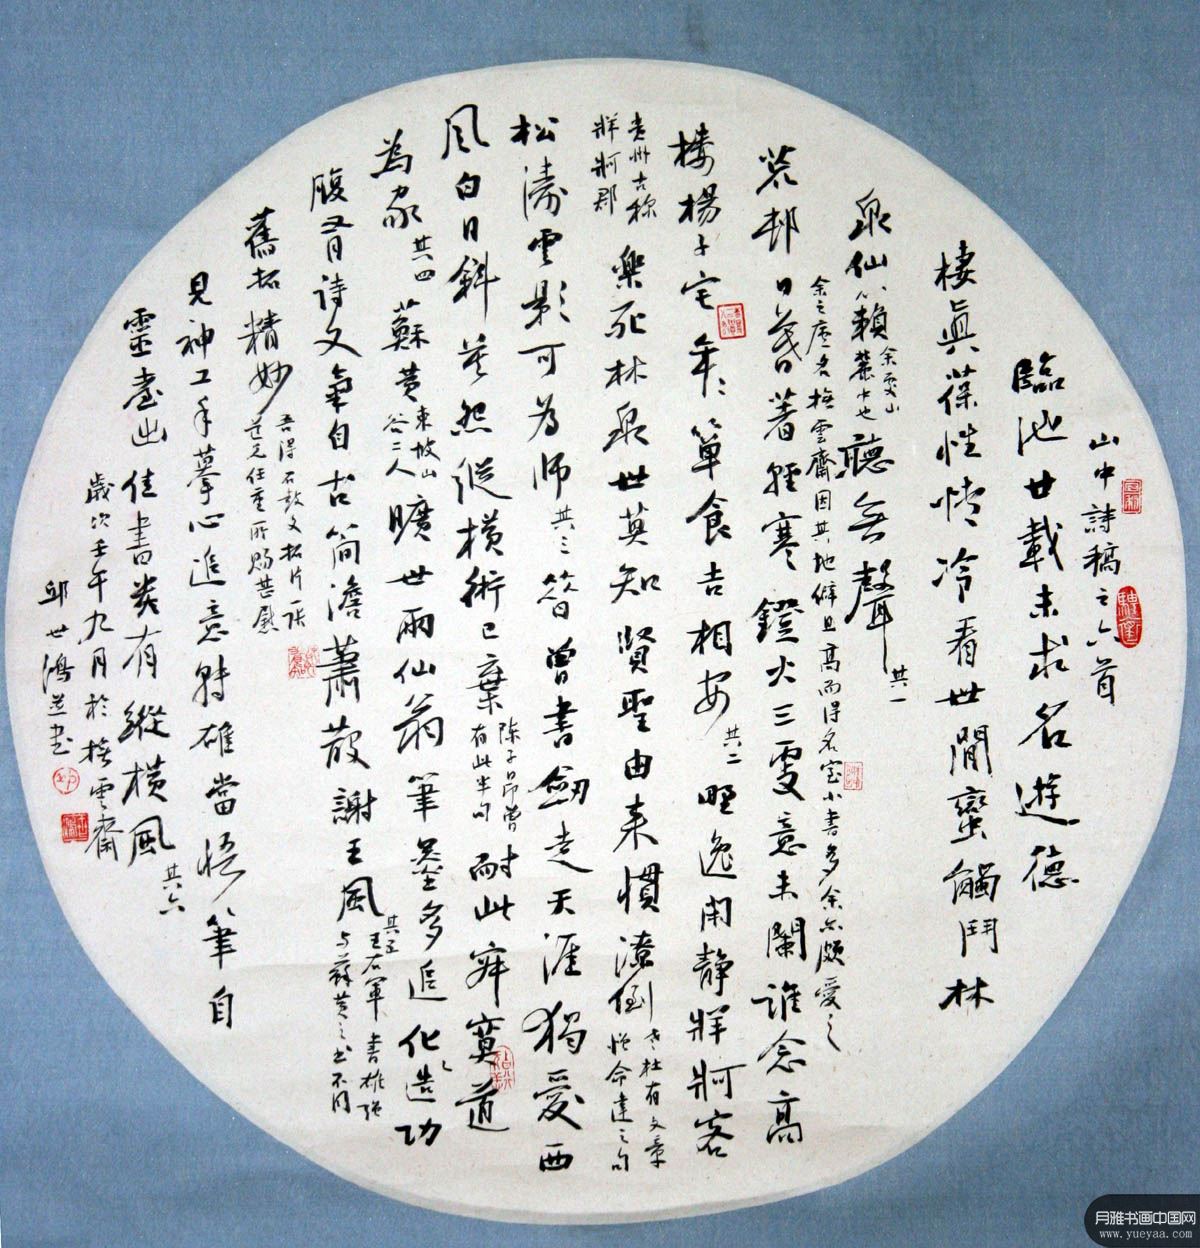 山中詩稿之六首
臨池廿載未求名遊德
棲真葆性情冷看世間蠻觸鬥林
泉仙心賴余靈山麓中也聽無聲其一
余之廬名撫雲齋因其地僻且高而得名室小書多余亦頗愛之
荒邨日暮著輕寒鐙火三更意未闌誰念高
樓楊子宅年年簞食吉相安其二野逸閑靜牂牁客
貴州古稱
牂牁郡
樂死林泉世莫知賢聖由来慣潦倒老杜有文章
憎命達之句
松濤雲影可為師其三簪曾書劍走天涯獨愛西
風白日斜莫怨從橫術已棄陳子昂曾
有此半句
而耐此寂寞道
為家其四蘇黄東坡山
谷二人
曠世兩仙翁筆墨多追化造功
腹有詩文氣自古簡澹蕭散謝王風其五王右軍書雄強
与蘇黄之書不同
舊拓精妙吾得石鼓文拓片一張
任重所賜甚慰
見神工手摹心追意時確當悟筆自
靈臺出佳書貴有縱橫風其六
歲次壬午九月於撫雲齋
邱世鴻並書
月雅书画中国网
www.yueyaa.com